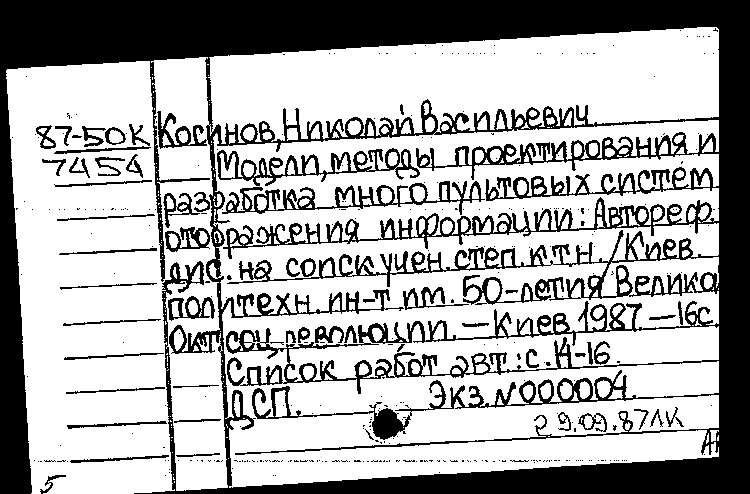 87-50К Косинов, Николай Васильевич.
7454 Модели, методы проектирования и
разработка много пультовых систем
отображения информации: Автореф.
дис. на соиск. учен. степ. к.т.н. / Киев.
политехн. ин-т им. 50-летия Велика
Окт. соц. революции. — Киев, 1987 — 16с.
Список работ авт.: с. 14-16.
ДСП. Экз. N000004.
29.09.87 ЛК
5